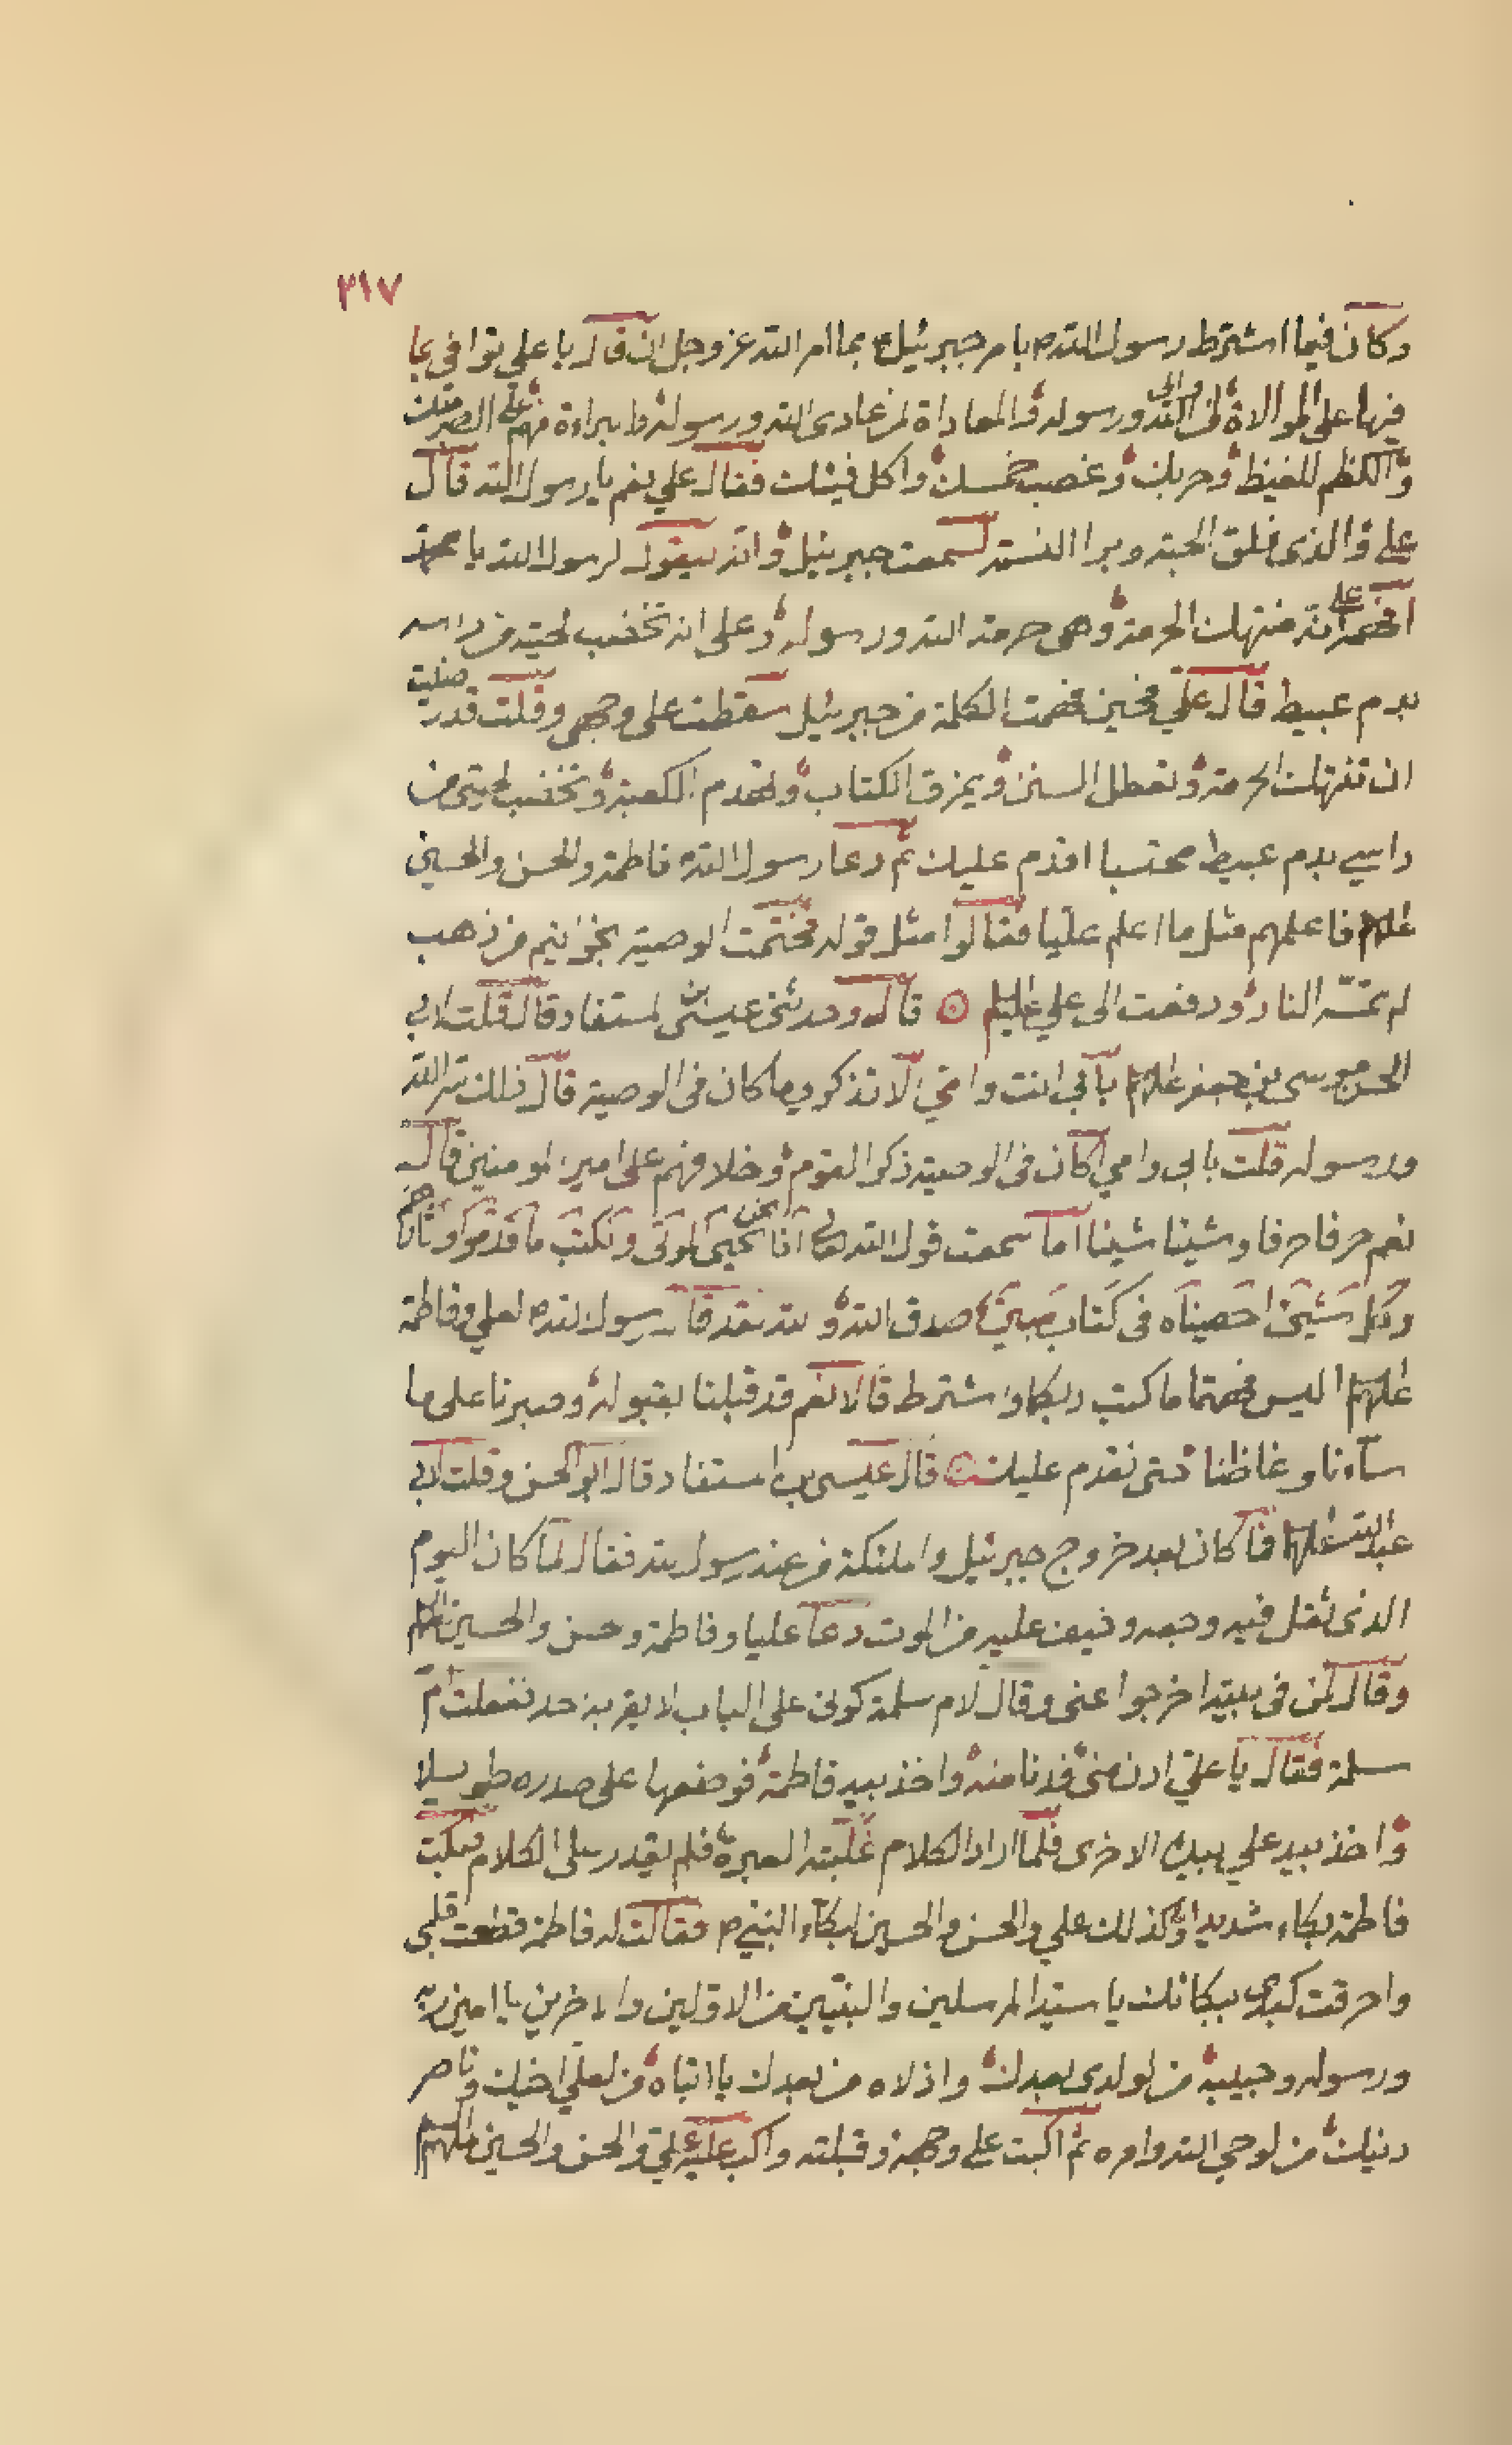 ٣١٧
وكان فيما اشترط رسول الله ص بامر جبرئيل ع بما امر الله عز وجل ان قال يا علي توافي بما
فيها على الموالاة لمن والى الله ورسوله والمعاداة لمن عادى الله ورسوله والبراءة منهم على الصبر منك
والكظم للغيظ وحربك وغصب خمسك واكل فيئك فقال علي نعم يا رسول الله قال
علي والذى فلق الحبة وبرا النسمة لسمعت جبرئيل وانه ليقول لرسول الله يا محمد
انه منتهك الحرمة وهى حرمة الله ورسوله وعلى ان تخضب لحيته من راسه
بدم عبيط قال علي فحين فهمت الكلمة من جبرئيل سقطت على وجهى وقلت قد رضيت
ان تنتهك الحرمة وتعطل السنن ويمزق الكتاب وتهدم الكعبة وتخضب لحيتى من
راسي بدم عبيط محتسبا اقدم عليك ثم دعا رسول الله ص فاطمة والحسن والحسين
عليهم فاعلمهم مثل ما اعلم عليا فقالوا مثل قوله فختمت الوصية بخواتيم من ذهب
لم تمسّه النار ودفعت الى علي عليه السلم ۞ قال وحدثنى عيسى بن المستفاد قال قلت لابى
الحسن موسى بن جعفر عليهما بأبي انت وامي الا تذكر ما كان فى الوصية قال ذلك سر الله
ورسوله قلت بابى وامي اكان فى الوصية ذكر القوم وخلافهم على امير المومنين قال
نعم حرفا حرفا وشيئا شيئا اما سمعت قول الله تعالى انا نحن نحيى الموتى ونكتب ما قدموا وآثارهم
وكل شيئ احصيناه فى كتاب مبين صدق الله والله لقد قال رسول الله ص لعلي وفاطمة
عليهما اليس فهمتما ما كتب ربكما واشترط قالا نعم قد قبلنا بقبوله وصبرنا على ما
سآءنا وغاظنا حتى نقدم عليك ۞ قال عيسى بن المستفاد قال ابو الحسن وقلت لابى
عبد الله عليهما فما كان بعد خروج جبرئيل والملئكة من عند رسول الله فقال لما كان اليوم
الذى ثقل فيه وجعه وخيف عليه من الموت دعا عليا وفاطمة وحسن والحسين عليهم
وقال لمن فى بيته اخرجوا عنى وقال لام سلمة كونى على الباب لا يقربه احد ففعلت ام
سلمة فقال يا علي ادن منى فدنا منه واخذ بيد فاطمة فوضعها على صدره طويلا
واخذ بيد علي بيده الاخرى فلما اراد الكلام غلبته العبرة فلم يقدر على الكلام فبكت
فاطمة بكاء شديدا وكذلك علي والحسن والحسين لبكآء النبى ص فقالت له فاطمة قطعت قلبى
واحرقت كبدى ببكائك يا سيد المرسلين والنبيّين من الاولين والاخرين يا امين ربه
ورسوله وحبيبه من لولدى بعدك واذلاه من بعدك يا ابتاه من لعلي اخيك وناصر
دينك من لوحي الله وامره ثم اكبت على وجهه وقبلته واكب عليه علي والحسن والحسين عليهم السلم